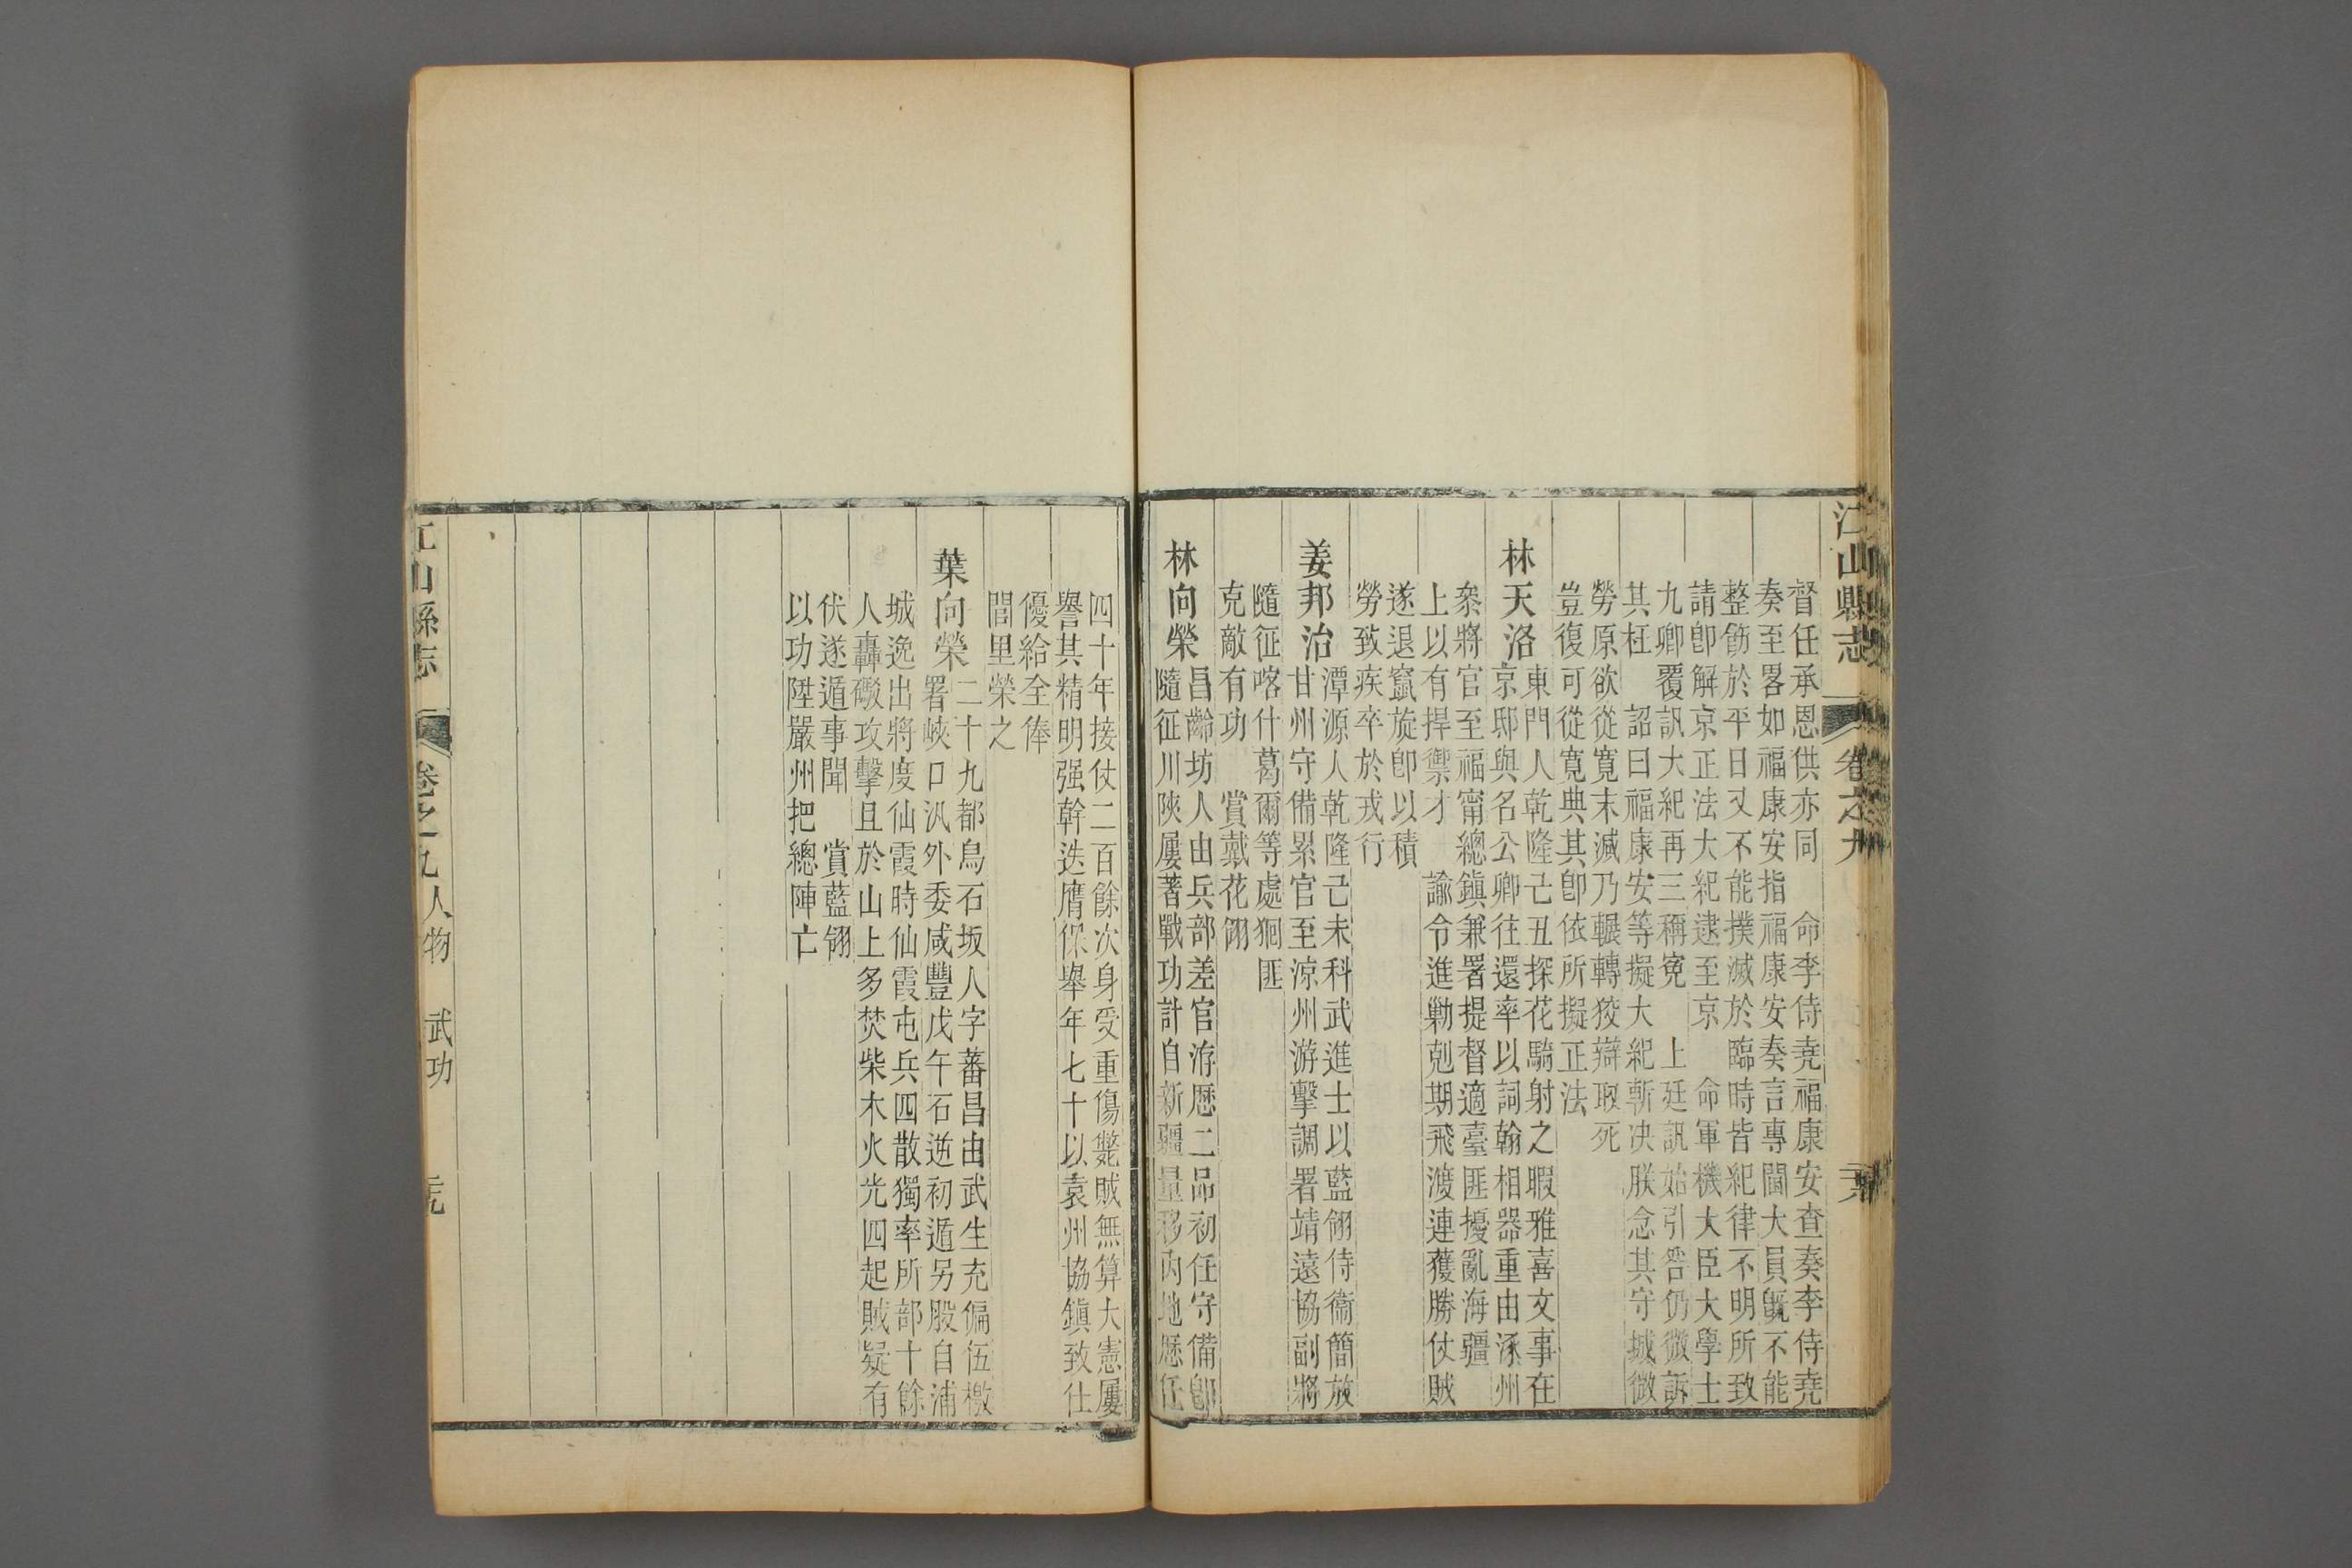 江山縣志 卷之九
督任承恩供亦同 命李侍堯福康安查奏李侍堯
奏至畧如福康安指 福康安奏言專閫大員旣不能
整飭於平日又不能撲滅於臨時皆紀律不明所致
請卽解京正法大紀逮至京 命軍機大臣大學士
九卿覆訊大紀再三稱寃 上廷訊始引咎仍微訴
其枉 詔曰福康安等擬大紀斬決朕念其守城微
勞原欲從寬末減乃輾轉狡辯取死
豈復可從寬典其卽依所擬正法
林天洛
東門人乾隆己丑探花騎射之暇雅喜文事在
京邸與名公卿往還率以詞翰相器重由涿州
叅將官至福甯總鎮兼署提督適臺匪擾亂海疆
上以有捍禦才 諭令進勦剋期飛渡連獲勝仗賊
遂退竄旋卽以積
勞致疾卒於戎行
姜邦治
潭源人乾隆己未科武進士以藍翎侍衞簡放
甘州守備累官至凉州游擊調署靖遠協副將
隨征喀什葛爾等處㺃匪
克敵有功 賞戴花翎
林向榮
昌齡坊人由兵部差官洊歷二品初任守備卽
隨征川陝屢著戰功計自新疆量移內地歷任
四十年接仗二百餘次身受重傷斃賊無算大憲屢
譽其精明强幹迭膺保舉年七十以袁州協鎮致仕
優給全俸
閭里榮之
葉向榮
二十九都鳥石坂人字蕃昌由武生充偏伍檄
署峽口汛外委咸豐戊午石逆初遁另股自浦
城逸出將度仙霞時仙霞屯兵四散獨率所部十餘
人轟礮攻擊且於山上多焚柴木火光四起賊疑有
伏遂遁事聞 賞藍翎
以功陞嚴州把總陣亡
江山縣志 卷之九人物 武功